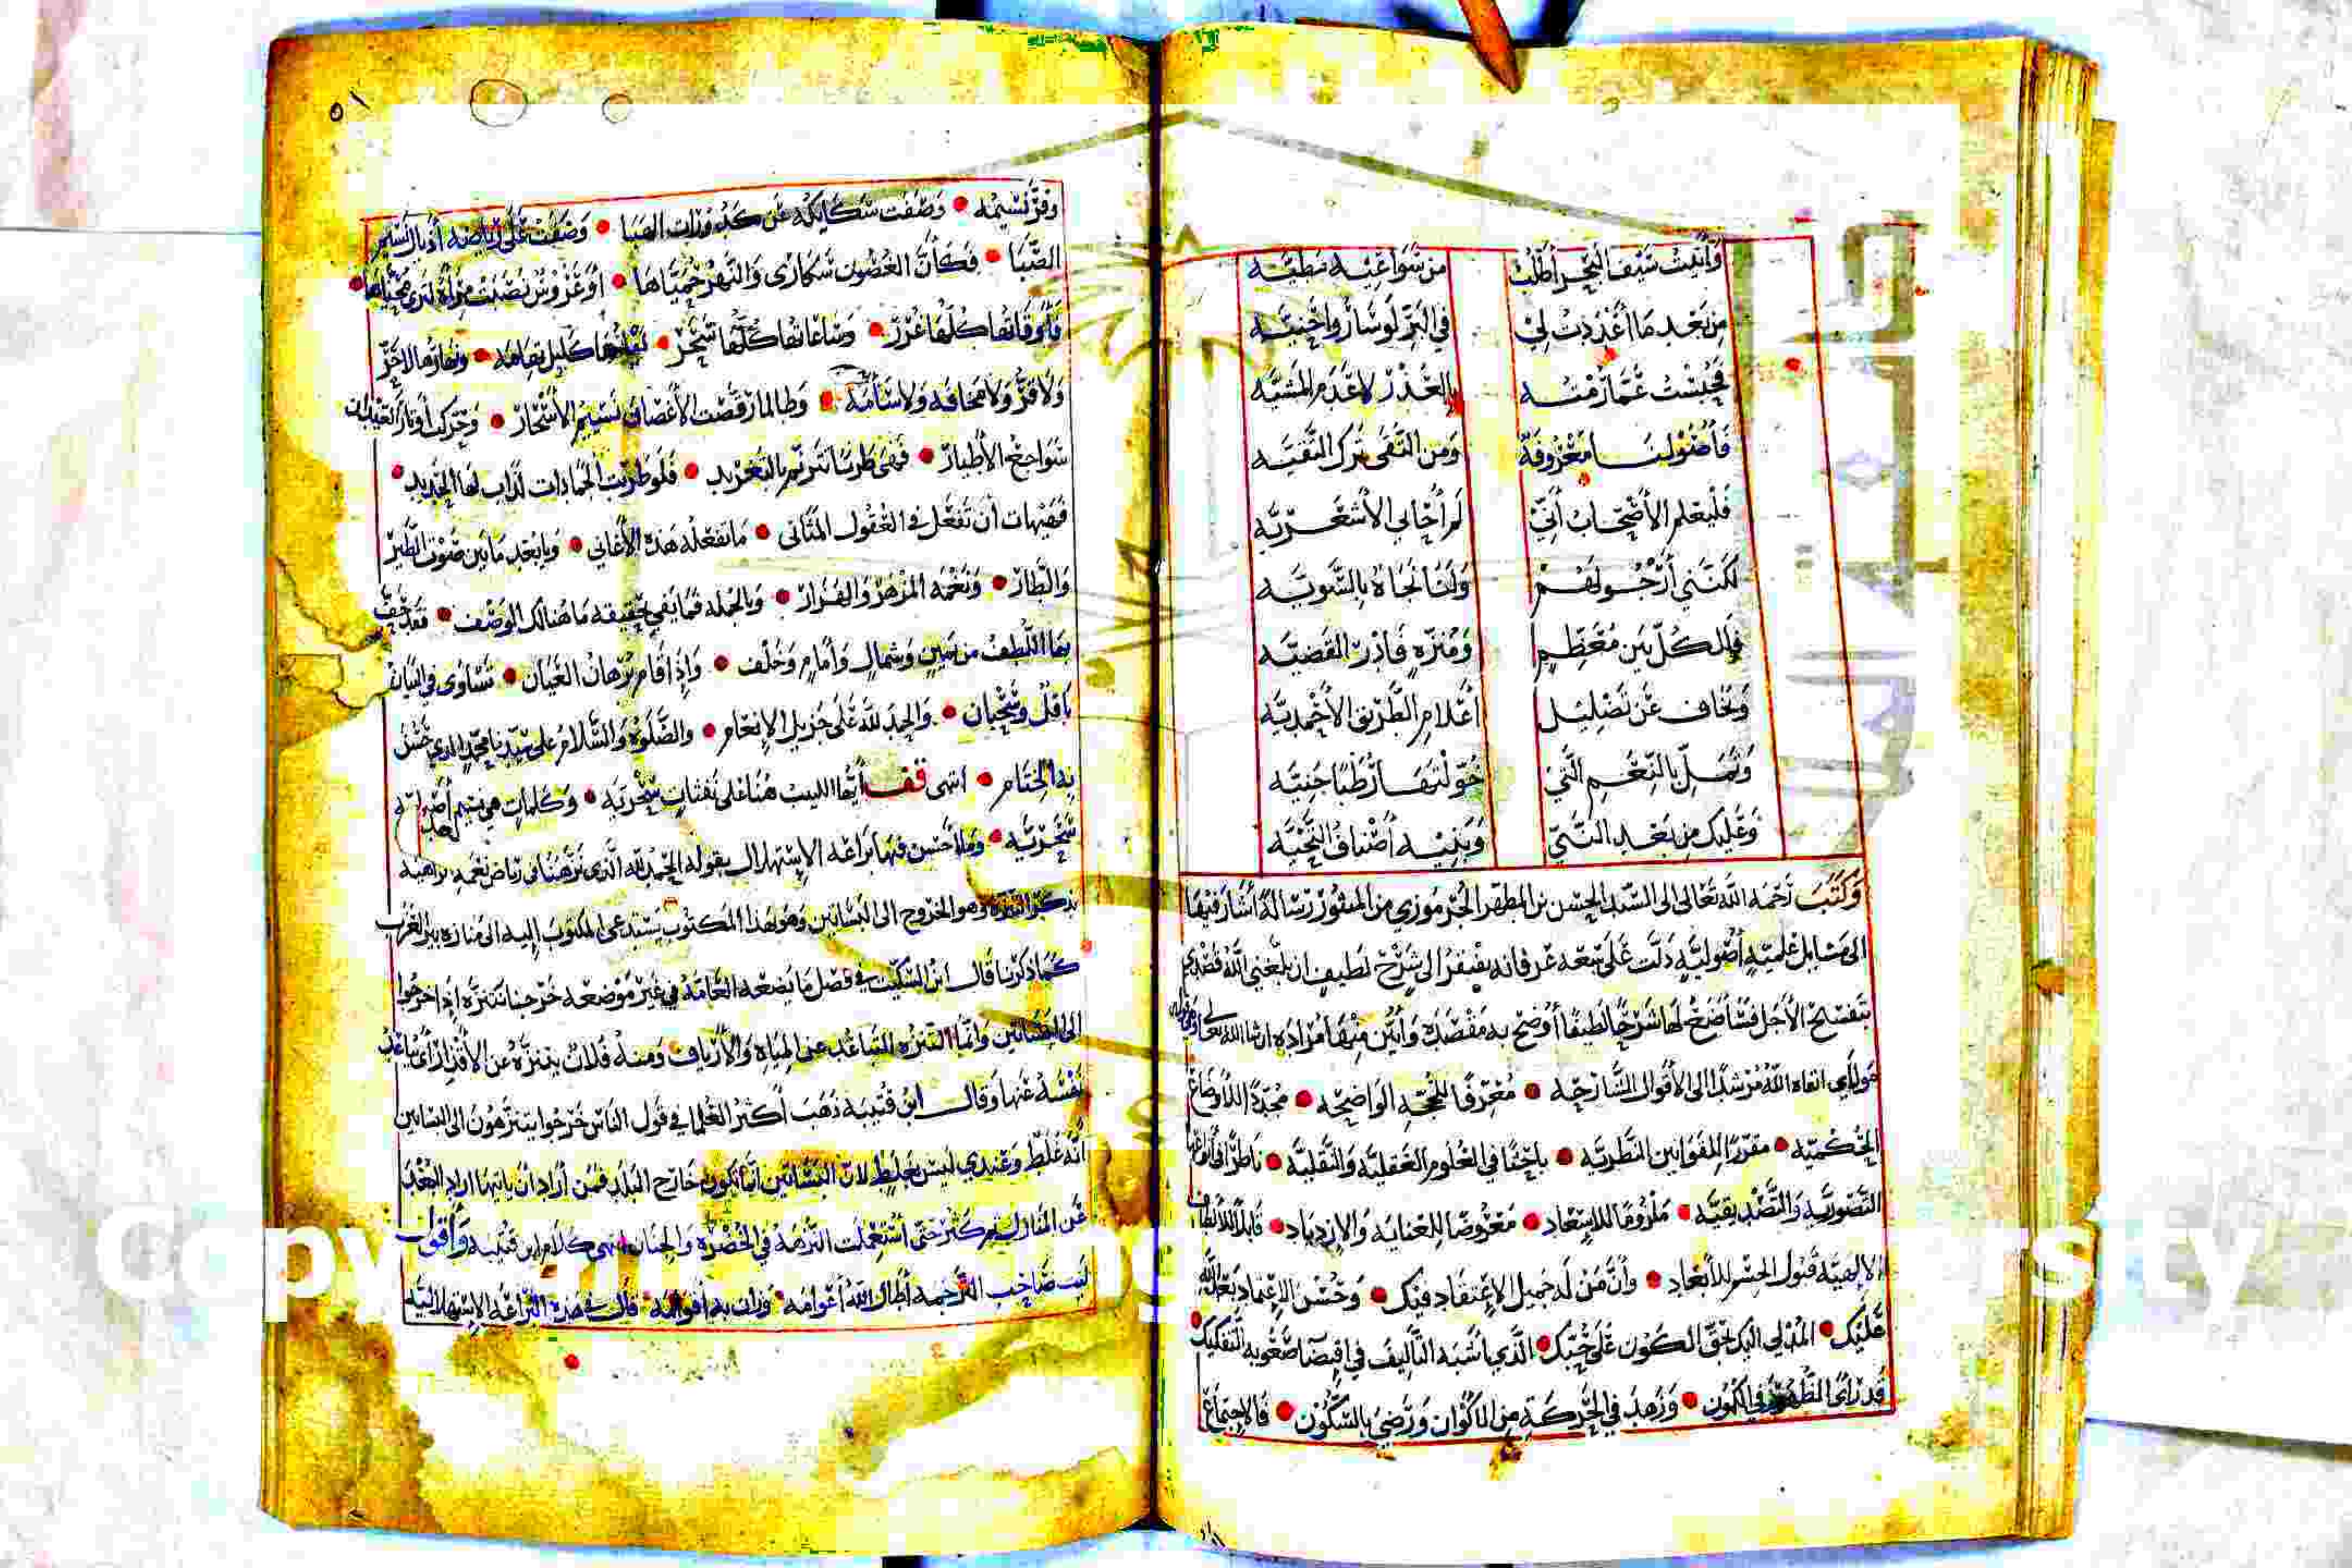 وَأَتَيْتُ سَيْفَ البَحْرِ أطلبُ من سَوَاعِيْهِ مَطِيَّه
مِن بَعْدِ مَا أَعْدَدتُ لِيْ في البَرِّ لَوْ سَارُوا حَنِيَّه
فحُبِسْتُ عَمَّا رُمْتُه بالعُذْرِ لاعَدَم المَشِيَّه
فَأُصُولُنَا مَعْرُوفَةٌ وَمِنَ التُّقَى تَرْكُ التَّقِيَّه
فَلْيَعْلَمِ الأَصْحَابُ أَنِّيْ لَمْ أُحَابِي الأَشْعَرِيَّه
لَكِنَّنِي أَرْجُو لَهُمْ وَلَنَا نَجَاةً بِالسَّوِيَّه
فَالكُلُّ بَيْن مُعَظِّمٍ وَمُنَزِّهٍ فَادْرِ القَضِيَّه
وَتَخَافُ عَنْ تَضْلِيْلِ أَعْلامِ الطَّرِيْقِ الأَحْمَدِيَّه
وَتَمَلَّ بِالنِّعَمِ الَّتِيْ خُوِّلْتَهَا رُطَبًا جَنِيَّه
وَعَلَيْكَ مِن بَعْدِ النَّبِيّ وَبَنِيْهِ أَصْنَافُ التَّحِيَّه
وَكَتَبَ رَحِمَهُ اللَّه تَعَالى إلى السَّيِّد الحَسَن بن المطهَّر الجُرْمُوزي من المنثور رِسَالةً أشَارَ فِيْهَا
الى مَسَايِلَ عِلْمِيَّةٍ أُصُولِيَّةٍ دَلَّت عَلَى سِعَة عِرْفَانِه يفتقرُ الى شَرْحٍ لَطِيفٍ ان بلَّغَنِي اللَّه قَصْدِي
بتَفْسِيْحِ الأَجَل فَسَأَضَعُ لَهَا شَرْحًا لَطِيفًا أُوضِحُ بِه مَقْصَدَهُ وَأُبَيِّنُ فِيْهَا مُرَادَهُ ان شا الله تعالى
مَولاي ابقاه اللَّهُ مُرْشِدًا الى الأَقْوَالِ الشَّارِحَه مُعَرِّفًا لِلْحُجَّةِ الوَاضِحَه مُجَدِّدًا للأَوضَاعِ
الحِكْمِيَّه مقَرِّرًا لِلقَوَانِين النَّظَرِيَّه بَاحِثًا في العُلُومِ العَقْلِيَّة وَالنَّقْلِيَّة نَاظِرًا في أنواعها
التَّصَوُّرِيَّة وَالتَّصْدِيقِيَّه مَلْزُومًا للإسْعَاد مَعْرُوضًا لِلعِنَايَه وَالازدِيَاد قَابلًا للألطافِ
الالهِيَّه قَبُولَ الجِسْم للأَبْعَاد وأَنَّ مَنْ لَهُ جَمِيل الاعتِقَاد فيك وَحُسْنُ الاعتِماد بَعْدَ اللَّه
عَلَيْك المُدْلِي اليك بحَقِّ الكَوْن عَلَى حُبِّك الَّذي اشْبَهَ التَّالِيفَ في اقتِضَا صُعُوبة التفكيك
قد رَأَى الظُّهُورَ في الكُمُون وَزَهِدَ في الحَرَكَةِ مِن الاكْوَانِ وَرَضِيَ بِالسُّكُون فَالاجتماعُ
٥١
وَفَرَّ نَسِيْمُه وَصَفَت سَكَايِكُه عَن كَدُورَات الصبا وَضَفَتْ عَلَى رِيَاضِهِ أَذْيَالُ نَسِيْم
الصَّبَا فَكَأَنَّ الغُصُون سَكَارَى وَالنَّهْرُ حُمَيَّاهَا أَوْ عَرُوْسٌ نَصَبَتْ مِرْآةً لِتَرَى مُحَيَّاهَا
فَأَوقَاتُهَا كلُّهَا غُرَرْ وَسَاعَاتُهَا كلُّهَا سَحَرْ لَيْلُهَا كَلَيْلِ تِهَامَه وَنَهَارُهَا لا حَرّ
وَلا قَرّ وَلا مَخَافَة وَلا سَآمَة وَطَالما رَقَّصَت الأغْصَانَ نَسِيمُ الأَسْحَارْ وَحَرَّكَ أَوْتَارَ العِيْدَان
سَوَاجِعُ الأَطْيَارْ فَهِيَ طَرَبًا تَتَرنَّم بالتَّغْرِيد فَلَو طَرِبَت الجَمَادَات لَذَاب لَهَا الحَدِيد
فَهَيْهَات أن تَفْعَل في العُقُول المَثَانِي مَا تَفْعَلُه هَذِهِ الأَغَانِي وَيَا بُعْد مَا بَيْنَ صَوْت الطَّيْر
وَالطَّارْ وَنَغْمَةِ المِزْهَرْ وَالهَزَارْ وَبِالجُمْلَة فَمَا يَفِي بحَقِيقَة مَا هُنَالِكَ الوَصْف فَقَد حَفَّ
بِهَا اللُّطْفُ من يَمِيْنٍ وَشِمَالٍ وَأَمَامٍ وَخَلْف وَإِذَا قَامَ بُرْهَانُ العَيَان تَسَاوَى في البَيَان
بَاقِلٌ وَسَحْبَان وَالحَمدُ للَّه عَلَى جَزِيلِ الإِنْعَام والصَّلوةُ وَالسَّلامُ على سَيِّدِنا محمَّدٍ الذي حَسُن
به الخِتَام انتهى قف أَيُّهَا اللبيبُ هُنَا عَلَى نَفَثَاتٍ سِحْرِيَّه وَكَلِمَاتٍ هي نَسِيم أَصْبَا
سَحَرِيَّه وَمَا أَحْسَن فيها بَرَاعَة الاسْتِهْلال بِقَولِه الحَمدُ للَّه الَّذي نَزَّهَنَا في رِيَاض نِعَمِهِ
بذِكْرِ التَّنَزُّه وَهو الخُرُوج الى البَسَاتِيْن وَهو لهَذا المَكتُوب يَسْتَدعِي المكتوب إليه الى منازه بير العَزَب
كَمَا ذَكَرْنَا قَالَ ابْنُ السِّكِّيت في فَصْل مَا تَضَعُه العَامَّة في غَيْر مَوْضِعه خَرَجنَا نَتَنَزَّه إذا خَرَجُوا
الى البَسَاتِين وَإنَّما التَّنَزُّه التَّبَاعُد عن المِيَاه وَالأرْيَاف وَمنه فلانٌ يتنَزَّه عن الأقْذَار أي يُبَاعِدُ
نَفْسَهُ عَنها وَقَالَ ابنُ قُتَيْبَة ذَهَبَ أكثَرُ العُلَما في قَول النَّاس خَرَجُوا يَتَنَزَّهُونَ الى البَسَاتِين
أنَّه غَلَطٌ وَعِنْدِي لَيس بغَلَطٍ لأنَّ البَسَاتِين انَّما تَكُون خَارِج البَلَد فَمَن أَرَادَ أن يَاتِيهَا ارَادَ البُعْد
عَنِ المَنَازِل ثم كَثُرَ حَتَّى اسْتُعْمِلَت النُّزْهَة في الخُضْرَة وَالجِنَان انتهى كلام ابن قتيبة وَأَقُول
لَيتَ صَاحِب التَّرجمة أطَالَ اللَّهُ أَعْوَامَه وَزَان به اقْوَامَه قال في هذه البَرَاعَة الاسْتِهْلالِيَّه